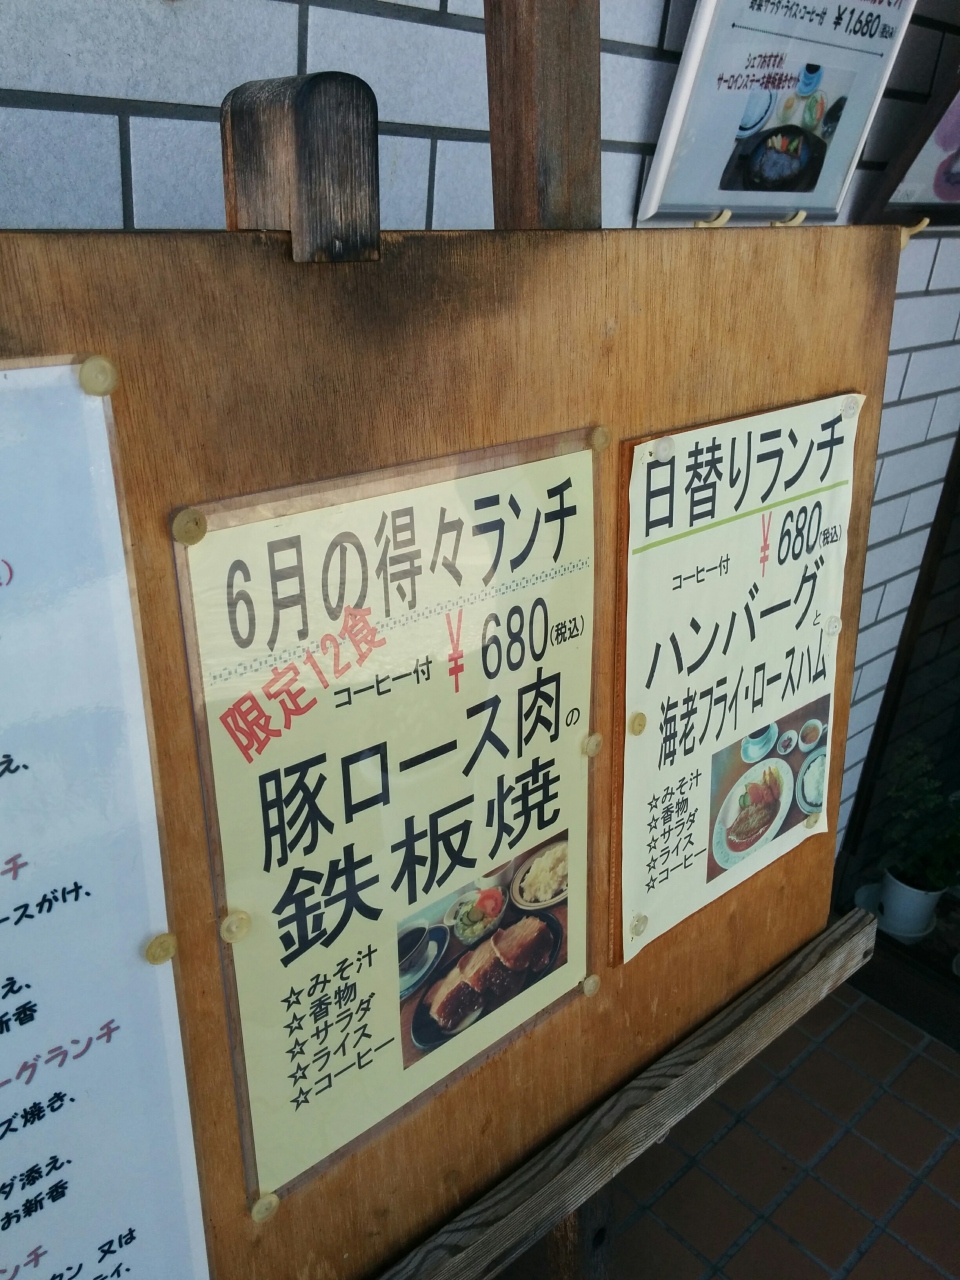 野菜サラダ・ライス・コーヒー付 ¥1,680(税込み)
シェフおすすめ!
サーロインステーキ鉄板焼きセット
6月の得々ランチ
限定12食
コーヒー付 ¥680(税込)
豚ロース肉の
鉄板焼
☆みそ汁
☆香物
☆サラダ
☆ライス
☆コーヒー
日替りランチ
コーヒー付 ¥680(税込)
ハンバーグと
海老フライ・ロースハム
☆みそ汁
☆香物
☆サラダ
☆ライス
☆コーヒー
え、
チ
ースがけ、
え、
新香
ーグランチ
ズ焼き、
ダ添え、
お新香
ンチ
カン 又は
ライ、